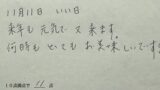 11月11日 いい日
来年も 元気で 又 来ます。
何時も とっても お美味しいです